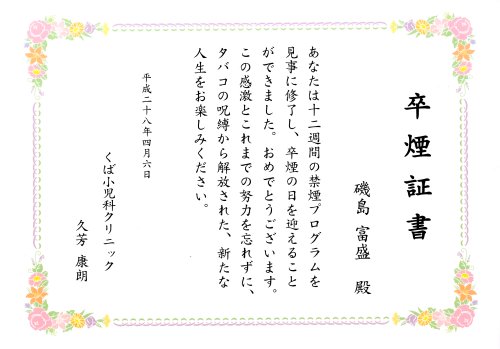 卒煙証書
磯島 富盛 殿
あなたは十二週間の禁煙プログラムを
見事に修了し、卒煙の日を迎えること
ができました。おめでとうございます。
この感激とこれまでの努力を忘れずに、
タバコの呪縛から解放された、新たな
人生をお楽しみください。
平成二十八年四月六日
くば小児科クリニック
久芳 康朗